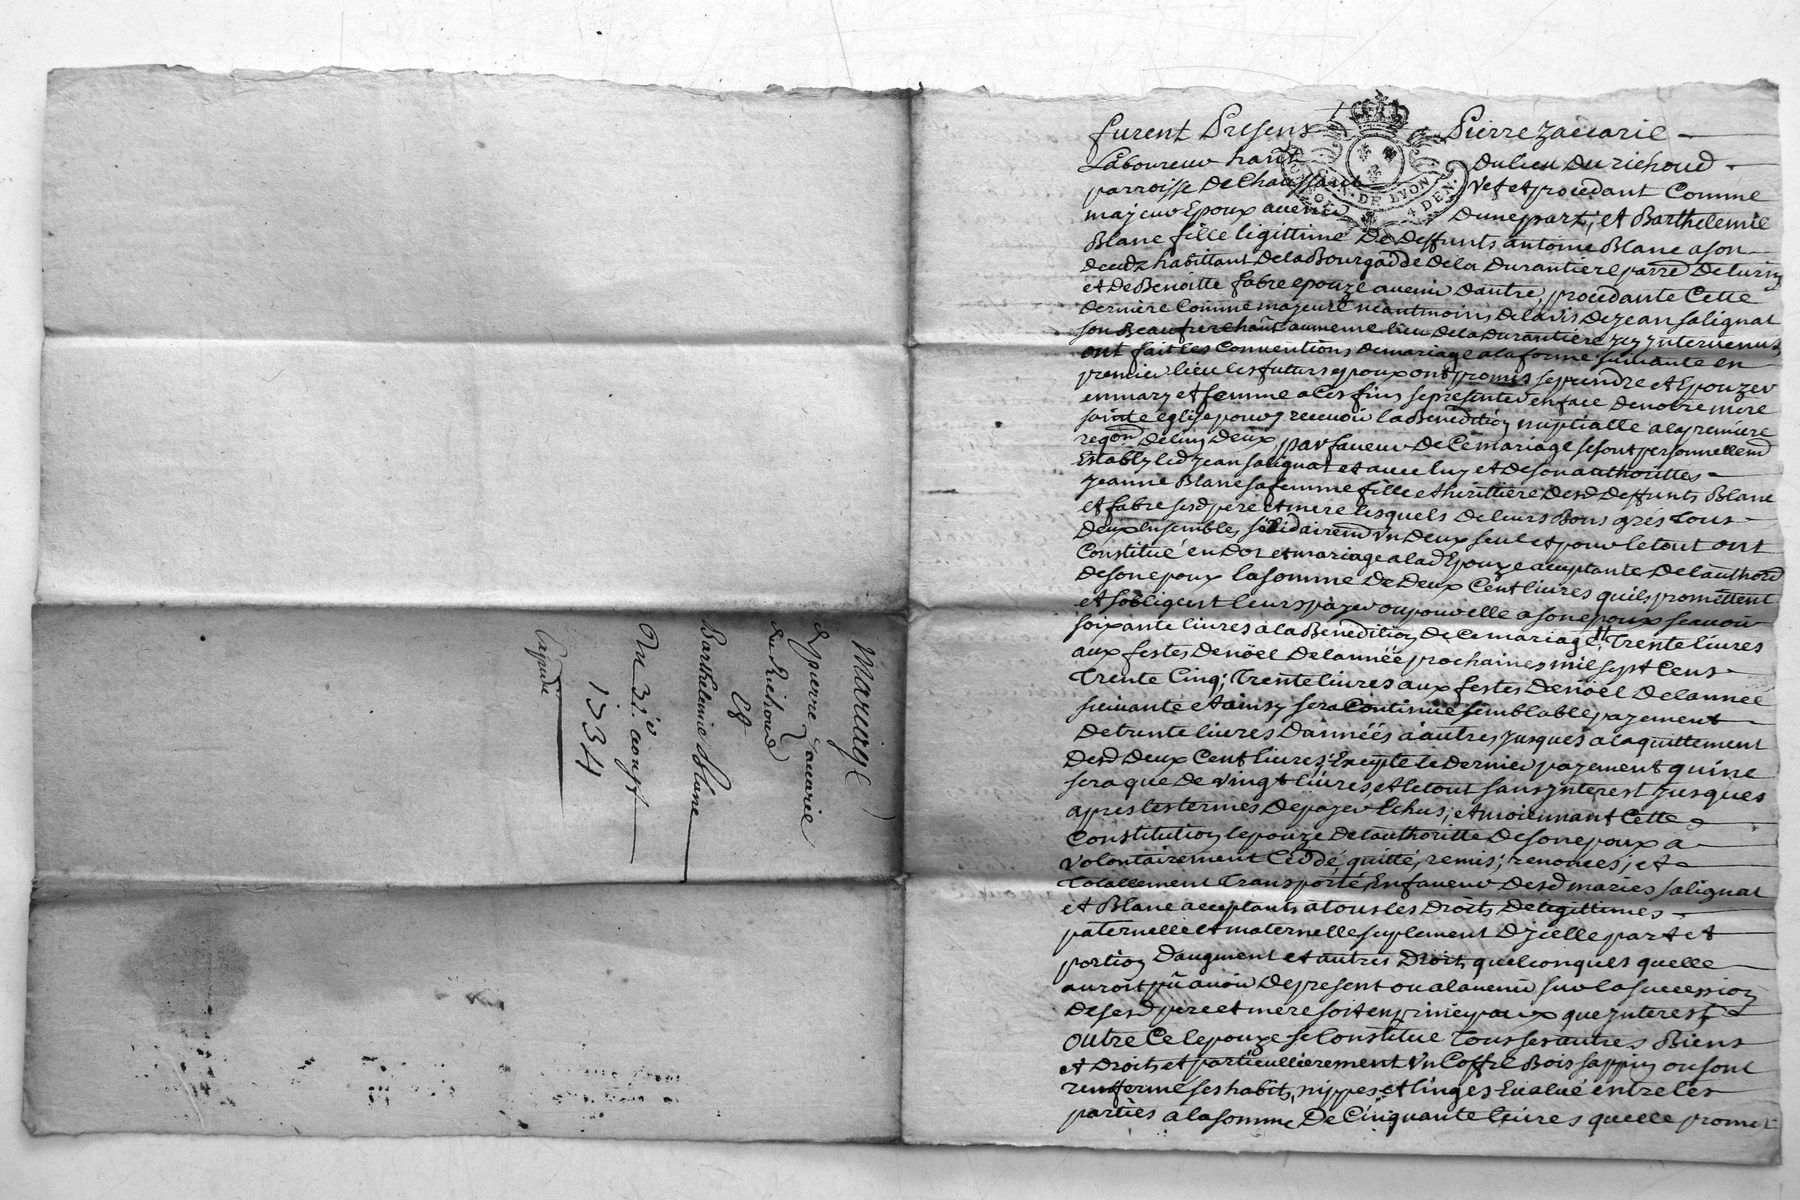 Mariage
de pierre Zacarie
du Richoud
Et
Barthelemie Blanc
Du 31e aoust
1734
furent Presens Pierre Zacarie
Laboureur hant du lieu du richoud
parroisse de Chaussant Vef et procedant Comme
majeur Epoux avenir dune part; et Barthelemie
Blanc fille ligittime de deffunts antoine Blanc a son
decedz habittant de la Bourgadde de la durantiere parre de
et de Benoitte fabre epouze avenir dautre, procedante Cette
derniere Comme majeure neantmoins de lavis de jean salignat
son Beaufrere hant au meme lieu de la durantiere jcy jntervenus
ont fait les Conventions de mariage a la forme suivante en
premier lieu les futurs epoux ont promis se prendre et Epouzer
en mary et femme a ces fins se presenter en face de notre mere
sainte eglise pour y recevoir la Benedition nuptialle a la premiere
reqon de lun deux, par faveur de Ce mariage se sont personnellemd
Etably led jean salignat et avec luy et de son authorittes
jeanne Blanc sa femme fille et herittiere desd deffunts Blanc
et fabre sesd pere et mere lesquels de leurs Bons grés tous
deux ensembles, solidairemd vn deux seul et pour le tout ont
Constitué en dot et mariage a lad Epouze acceptante de lauthord
de son epoux la somme de deux Cent livres quils promettent
et sobligent leurs payer ou pour elle a son epoux scavoir
soixante livres a la Benedition de Ce mariage, trente livres
aux festes de noël de lannée prochaines mil sept Cens
trente Cinq; trente livres aux festes de noël de lannée
suivante et ainsy sera Continué semblable payement
de trente livres dannéés a autres jusques a laquittement
desd deux Cent livres; Excepté le dernier payement qui ne
sera que de vingt livres, et le tout sans jnterest jusques
apres les termes de payer Echus; et moiennant Cette
Constitution lepouze de lauthoritte de son epoux a
volontairement Ceddé, quitté, remis; renoncés; et
totallement transporté, En faveur desd maries salignat
et Blanc acceptants a tous les droits de legittimes
paternelle et maternelle suplement dycelle part et
portion daugment et autres droits quelconques quelle
auroit pû avoir de present ou a lavenir sur la succession
de sesd pere et mere soit en principaux que jnterest
outre Ce lepouze se Constitue tous ses autres Biens
et droits et particullierement vn Coffre Bois sappin ou sont
renfermé ses habits, nippes, et linges Evalué entre les
parties a la somme de Cinquante livres quelle promet